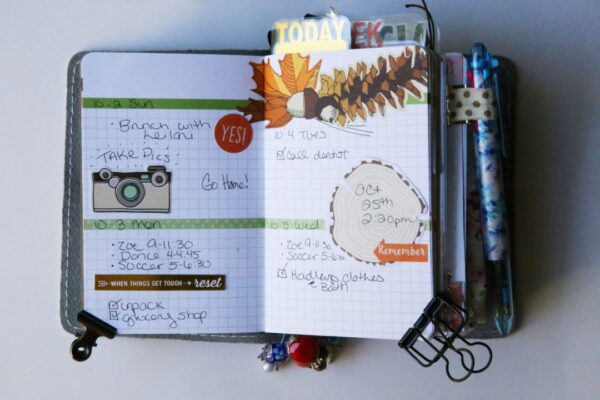 TODAY
EK
10-2 Sun
• Brunch with
Leilani
YES!
TAKE Pics
Go Home!
10-3 mon
• Zoe 9-11:30
• Dance 4-4:45
• Soccer 5-6:30
WHEN THINGS GET TOUGH → reset
unpack
grocery shop
10-4 Tues
Call dentist
Oct
25th
2:20pm
Remember
10-5 Wed
• Zoe 9-11:30
• Soccer 5-6:30
Hadleys clothes
Bath